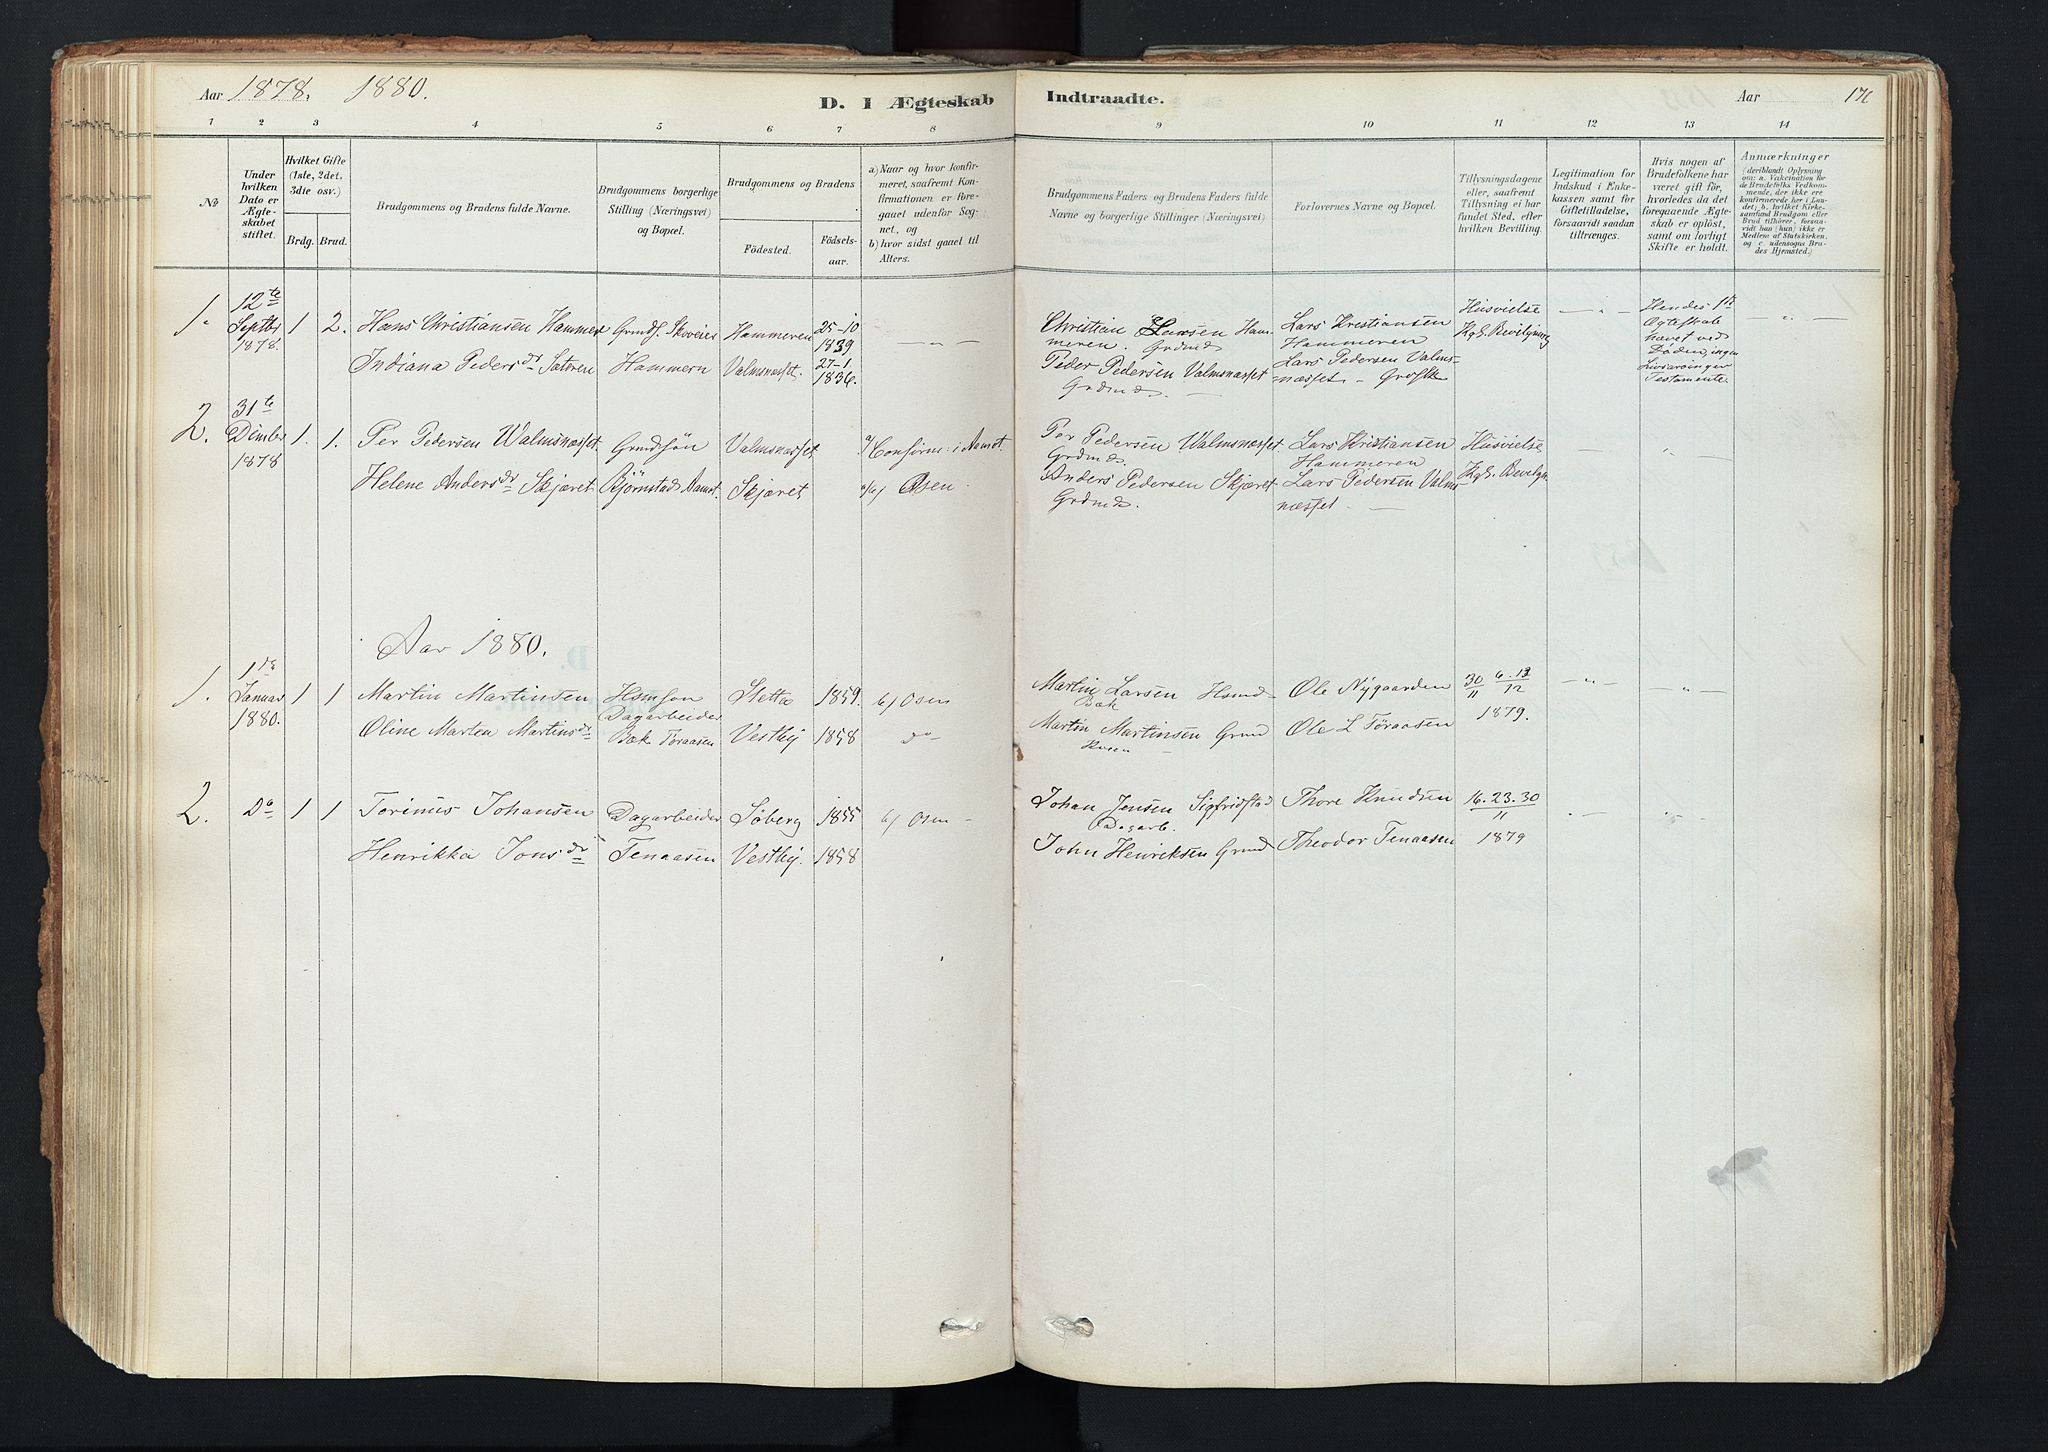 Aar 1878. 1880.
D. I Ægteskab Indtraadte.
Aar 171
1 2 3 4 5 6 7 8 9 10 11 12 13 14
No
Under hvilken Dato er Ægteskabet stiftet.
Hvilket Gifte (1ste, 2det, 3die osv.)
Brdg. Brud.
Brudgommens og Brudens fulde Navne.
Brudgommens borgerlige Stilling (Næringsvei) og Bopæl.
Brudgommens og Brudens
Födested.
Födselsaar.
a) Naar og hvor konfirmeret, saafremt Konfirmationen er foregaaet udenfor Sognet, og
b) hvor sidst gaaet til Alters.
Brudgommens Faders og Brudens Faders fulde Navne og borgerlige Stillinger (Næringsvei)
Forlovernes Navne og Bopæl.
Tillysningsdagene eller, saafremt Tillysning ei har fundet Sted, efter hvilken Bevilling.
Legitimation for Indskud i Enkekassen samt for Giftetilladelse, forsaavidt saadan tiltrænges.
Hvis nogen af Brudefolkene har været gift för, hvorledes da det foregaaende Ægteskab er oplöst, samt om lovligt Skifte er holdt.
Anmærkninger (deriblandt Oplysning om: a. Vakcination for de Brudefolks Vedkommende, der ikke ere konfirmerede her i Landet; b. hvilket Kirkesamfund Brudgom eller Brud tilhörer, forsaavidt han (hun) ikke er Medlem af Statskirken, og c. udensogns Brudes Hjemsted.)
1. 12te Septbr 1878. 1 2. Hans Christiansen Hammer Grundf. Skoveier Hammeren 25-10 1839 — „ —
Indiana Pedersdr Sæteren Hammern Valmsnæsset. 27-1 1836.
Christian Larsen Hammeren. Grdmd
Peder Pedersen Valmsnæsset Grdmd. —
Lars Kristiansen Hammeren
Lars Pedersen Valmsnæsset —
Husvielse Kgl. Bevilgning
Hendes 1te Ægteskab hævet ved Döden, ingen Livsarvinger Testamente.
2. 31te Dcmber 1878 1. 1. Per Pedersen Walmsnæsset. Grundsøn Valmsnæsset a/ Confirm: i Aamot.
Helene Andersdr Skjæret Björnstad Aamot. Skjæret b/ Osen.
Per Pedersen Walmsnæsset Grdmd.
Anders Pedersen Skjæret Grdmd.
Lars Kristiansen Hammeren
Lars Pedersen Valmsnæsset. —
Husvielse Kgl. Bevilgn.
Aar 1880.
1. 1ste Januar 1880. 1 1 Martin Martinsen Dagarbeider Sletta 1859. b/ Osen
Oline Marten Martinsdr Bæk Tøraasen Vestby 1858 do
Martin Larsen Bæk
Martin Martinsen Grmd
Ole Nygaarden
Ole L Tøraasen
30/11 6. 13/12 1879.
2. Do 1 1 Torinus Johansen Dagarbeider Søberg 1855 b/ Osen
Henrikka Jonsdr Tenaasen Vestby. 1858
Johan Jensen Sigfridstad Dagarb.
John Henriksen Grmd
Thore Knudsen
Theodor Tenaasen
16. 23. 30/11 1879